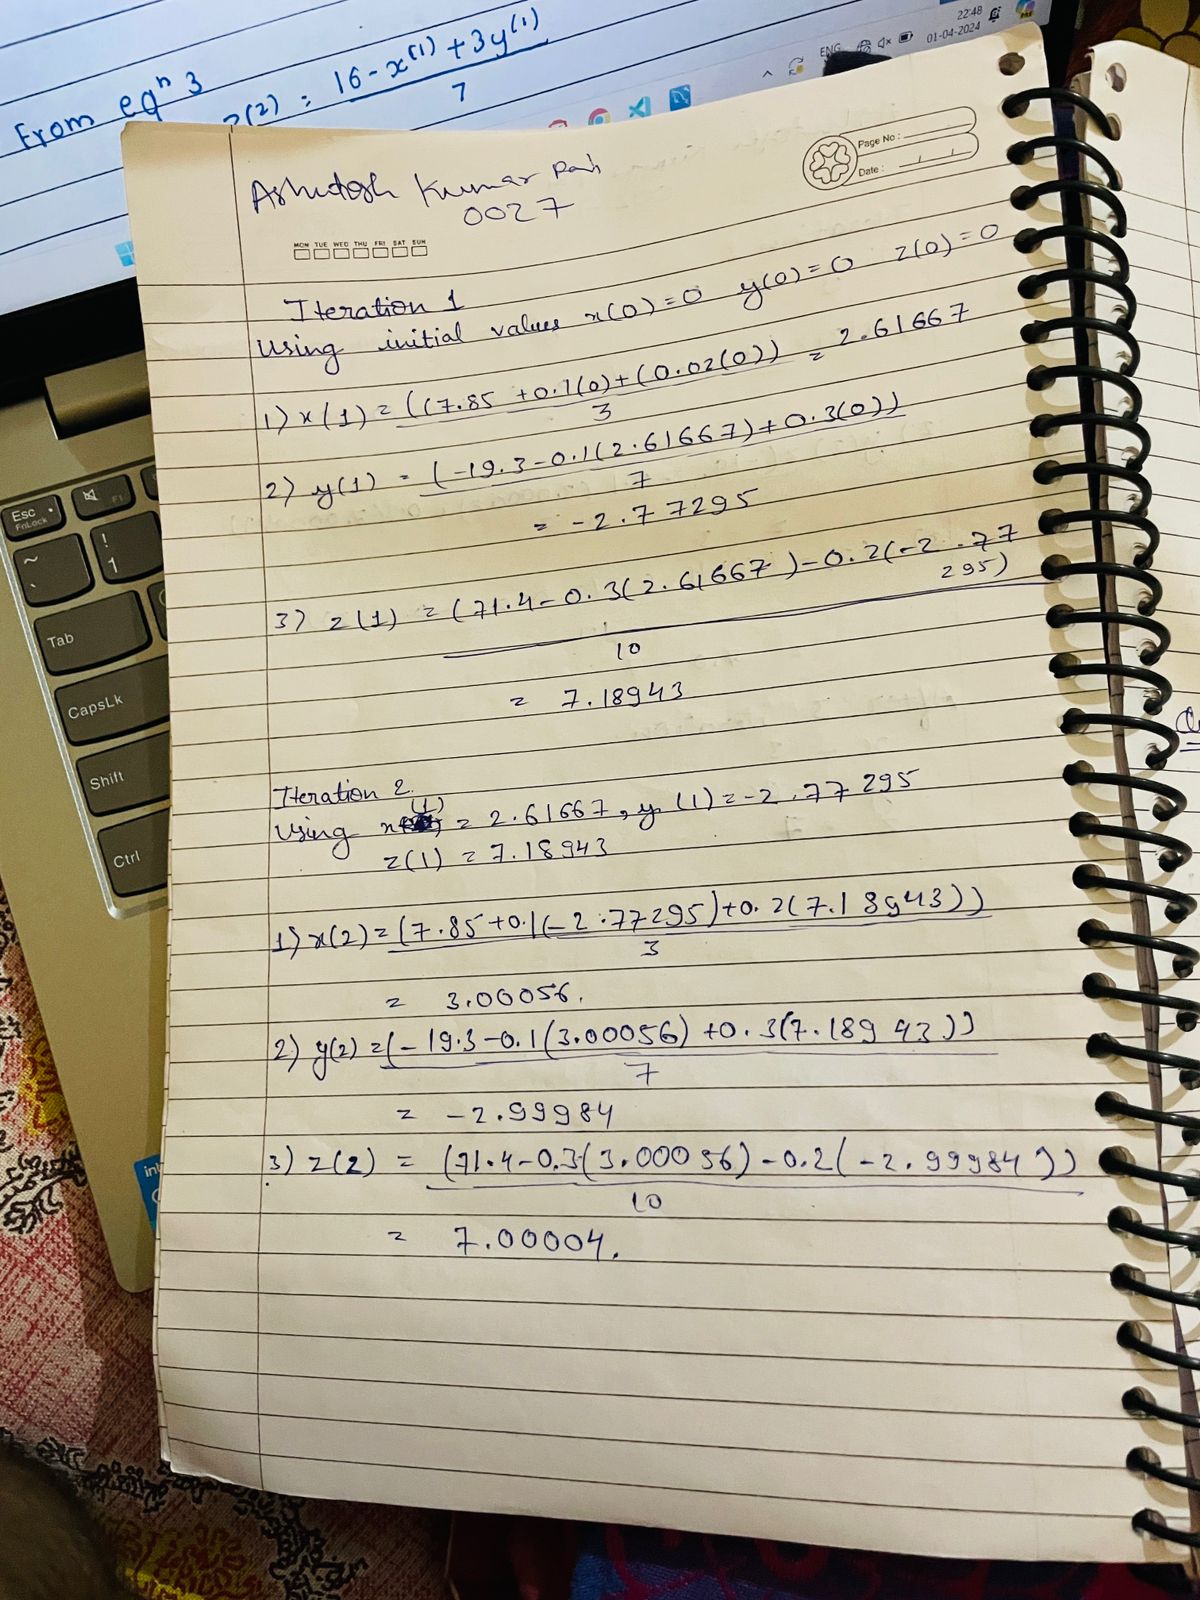 22:48
ENG
01-04-2024
From eqⁿ 3
z(2) = 16 - x⁽¹⁾ + 3y⁽¹⁾
7
Page No :
Date :
Ashutosh Kumar
0027
MON TUE WED THU FRI SAT SUN
Iteration 1
Using initial values x(0)=0 y(0)=0 z(0)=0
1) x(1) = ((7.85 +0.1(0)+(0.02(0)) = 2.61667
3
2) y(1) = (-19.3-0.1(2.61667)+0.3(0))
7
= -2.77295
3) z(1) = (71.4-0.3(2.61667)-0.2(-2.77
295)
10
= 7.18943
Iteration 2.
Using x(1) = 2.61667, y(1)=-2.77295
z(1) = 7.18943
1) x(2) = (7.85+0.1(-2.77295)+0.2(7.18943))
3
= 3.00056.
2) y(2) = (-19.3-0.1(3.00056)+0.3(7.18943))
7
= -2.99984
3) z(2) = (71.4-0.3(3.00056)-0.2(-2.99984))
10
= 7.00004.
Esc
FnLock
F1
~
`
!
1
Tab
CapsLk
Shift
Ctrl